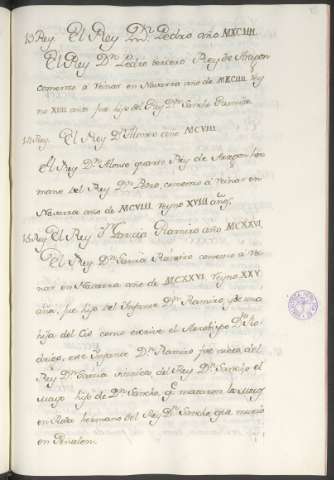 13 Rey. El Rey Dn. Pedro año MXCIIII.
El Rey Dn. Pedro tercero Rey de Aragon
comenso a reinar en Navarra año de MXCIIII. Rey
no XIIII años fue hijo del Rey Dn. Sancho Ramirez
14 Rey. El Rey Dn. Alonso año MCVIII.
El Rey Dn. Alonso quarto Rey de Aragon her
mano del Rey Dn. Pedro comenso a reinar en
Navarra año de MCVIII. Reyno XVIII años.
15 Rey El Rey Dn. Garcia Ramirez año MCXXVI.
El Rey Dn. Garcia Ramirez comenso a Rei
nar en Navarra año de MCXXVI. Reyno XXV
años, fue hijo del Infante Dn. Ramiro, y de una
hija del Cid como escrive el Arcobispo Dn. Ro
drigo, este Infante Dn. Ramiro fue nieto del
Rey Dn. Garcia hijo del Rey Dn. Sancho el
mayor hijo de Dn. Sancho, q. mataron
en Roda hermano del Rey Dn. Sancho que murio
en Penalen.